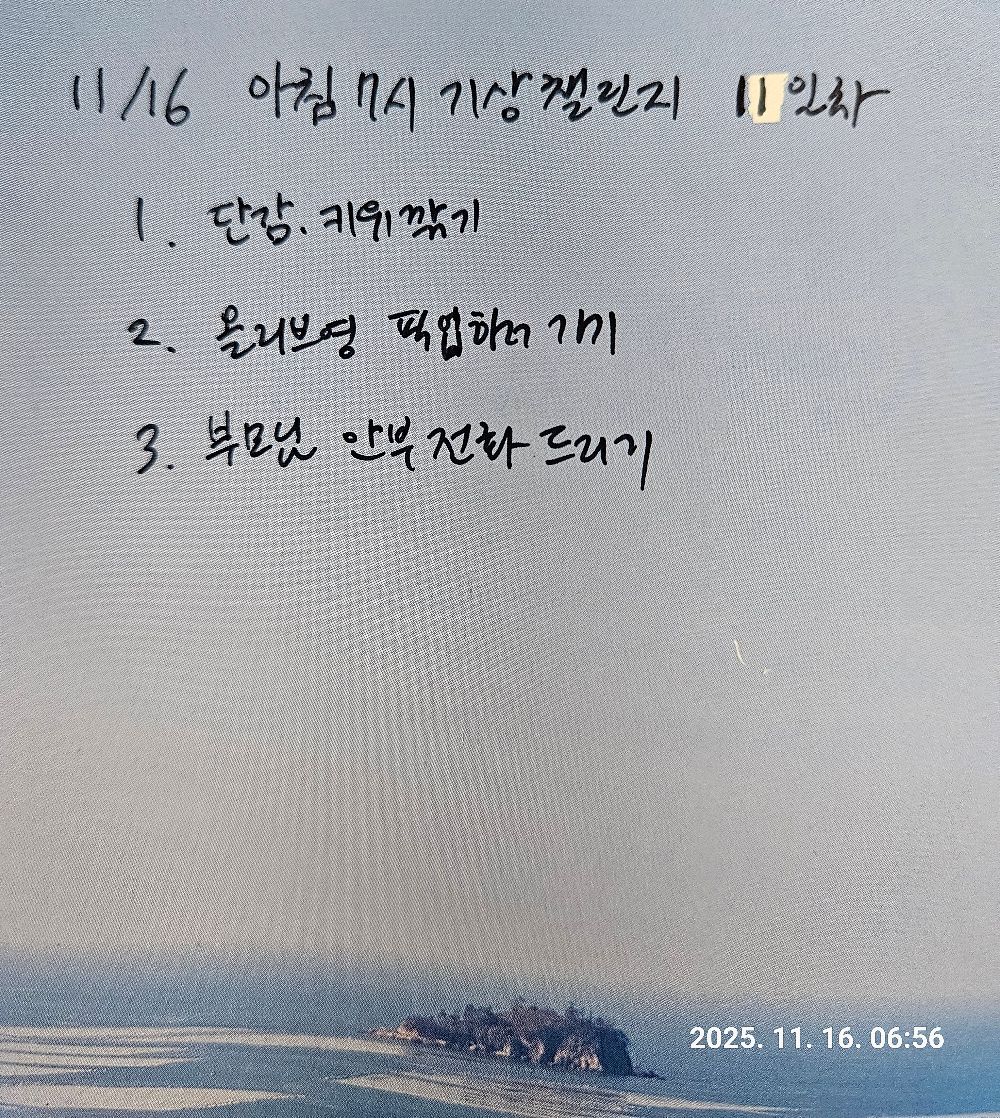 11/16 아침 7시 기상챌린지 11일차
1. 단감. 키위깎기
2. 올리브영 픽업하러 가기
3. 부모님 안부전화 드리기
2025. 11. 16. 06:56